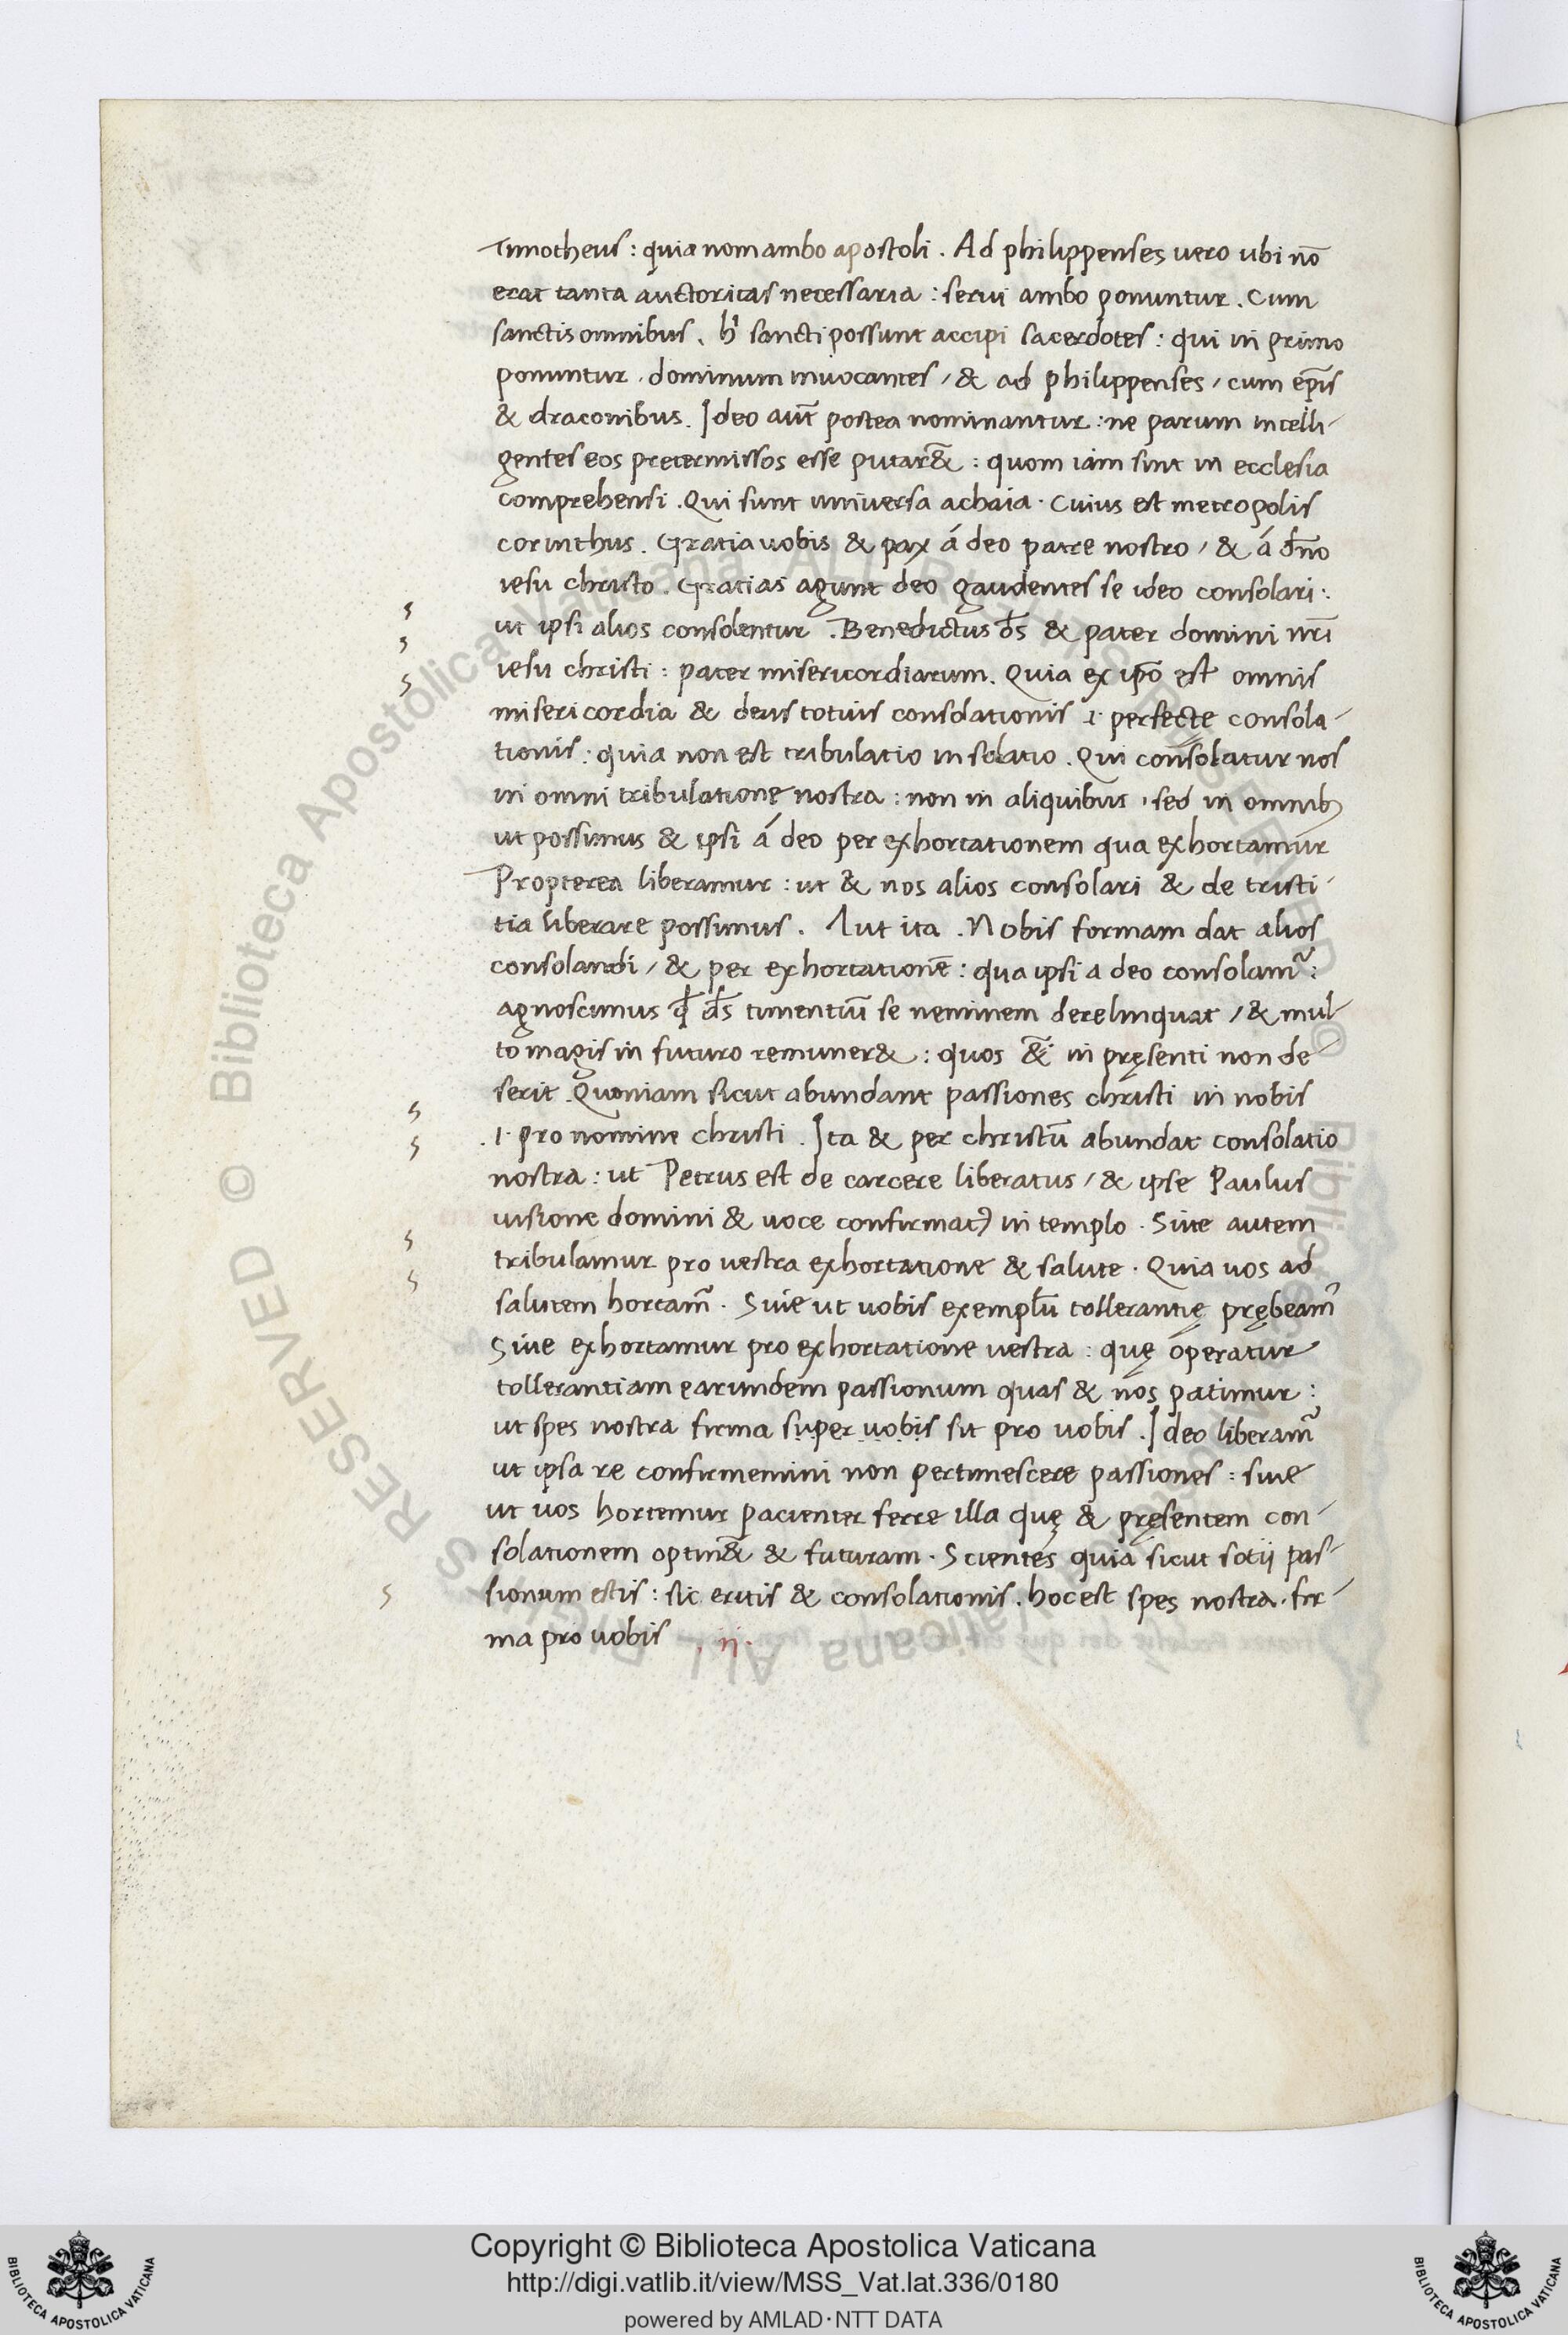 Timotheus : quia nom ambo apostoli . Ad philippenses vero ubi nō
erat tanta auctoritas necessaria : servi ambo ponuntur . Cum
sanctis omnibus . hi sancti possunt accipi sacerdotes : qui in primo
ponuntur . dominum invocantes / & ad philippenses / cum ep̄is
& draconibus . Ideo aut̄ postea nominantur : ne parum intelli-
gentes eos pretermissos esse putar&̄ : quom iam sint in ecclesia
comprehensi . Qui sunt universa achaia . Cuius est metropolis
corinthus . Gratia vobis & pax á deo patre nostro / & á dn̄o
iesu christo . Gratias agunt deo gaudentes se ideo consolari :.
ut ipsi alios consolentur . Benedictus ds̄ & pater domini nr̄i
iesu christi : pater misericordiarum . Quia ex ip̄o est omnis
misericordia & deus totius consolationis .i. perfecte consola-
tionis : quia non est tribulatio in solatio . Qui consolatur nos
in omni tribulationę nostra : non in aliquibus , sed in omnib;
ut possimus & ipsi á deo per exhortationem qua exhortamur
Propterea liberamur : ut & nos alios consolari & de tristi-
tia liberare possimus . Aut ita . Nobis formam dat alios
consolandi / & per exhortationē : qua ipsi a deo consolam̄ :
agnoscimus qd̄ ds̄ timentiū se neminem derelinquat / & mul-
to magis in futuro remuner& : quos &̄ in pręsenti non de-
serit . Quoniam sicut abundant passiones christi in nobis
.i. pro nomine christi . Ita & per christū abundat consolatio
nostra : ut Petrus est de carcere liberatus / & ipse Paulus
visione domini & voce confirmat) in templo . Sive autem
tribulamur pro vestra exhortatione & salute . Quia vos ad
salutem hortam̄ . Sive ut vobis exemplū tollerantię prębeam̄
Sive exhortamur pro exhortatione vestra : quę operatur
tollerantiam earundem passionum quas & nos patimur :
ut spes nostra firma super vobis sit pro vobis . Ideo liberam̄
ut ipsa re confirmemini non pertimescere passiones : sive
ut vos hortemur pacienter ferre illa quę & pręsentem con-
solationem optin&̄ & futuram . Scientes quia sicut sotii pas-
sionum estis : sic eritis & consolationis . hoc est spes nostra . fir-
ma pro vobis . ii.
Copyright © Biblioteca Apostolica Vaticana
http://digi.vatlib.it/view/MSS_Vat.lat.336/0180
powered by AMLAD·NTT DATA